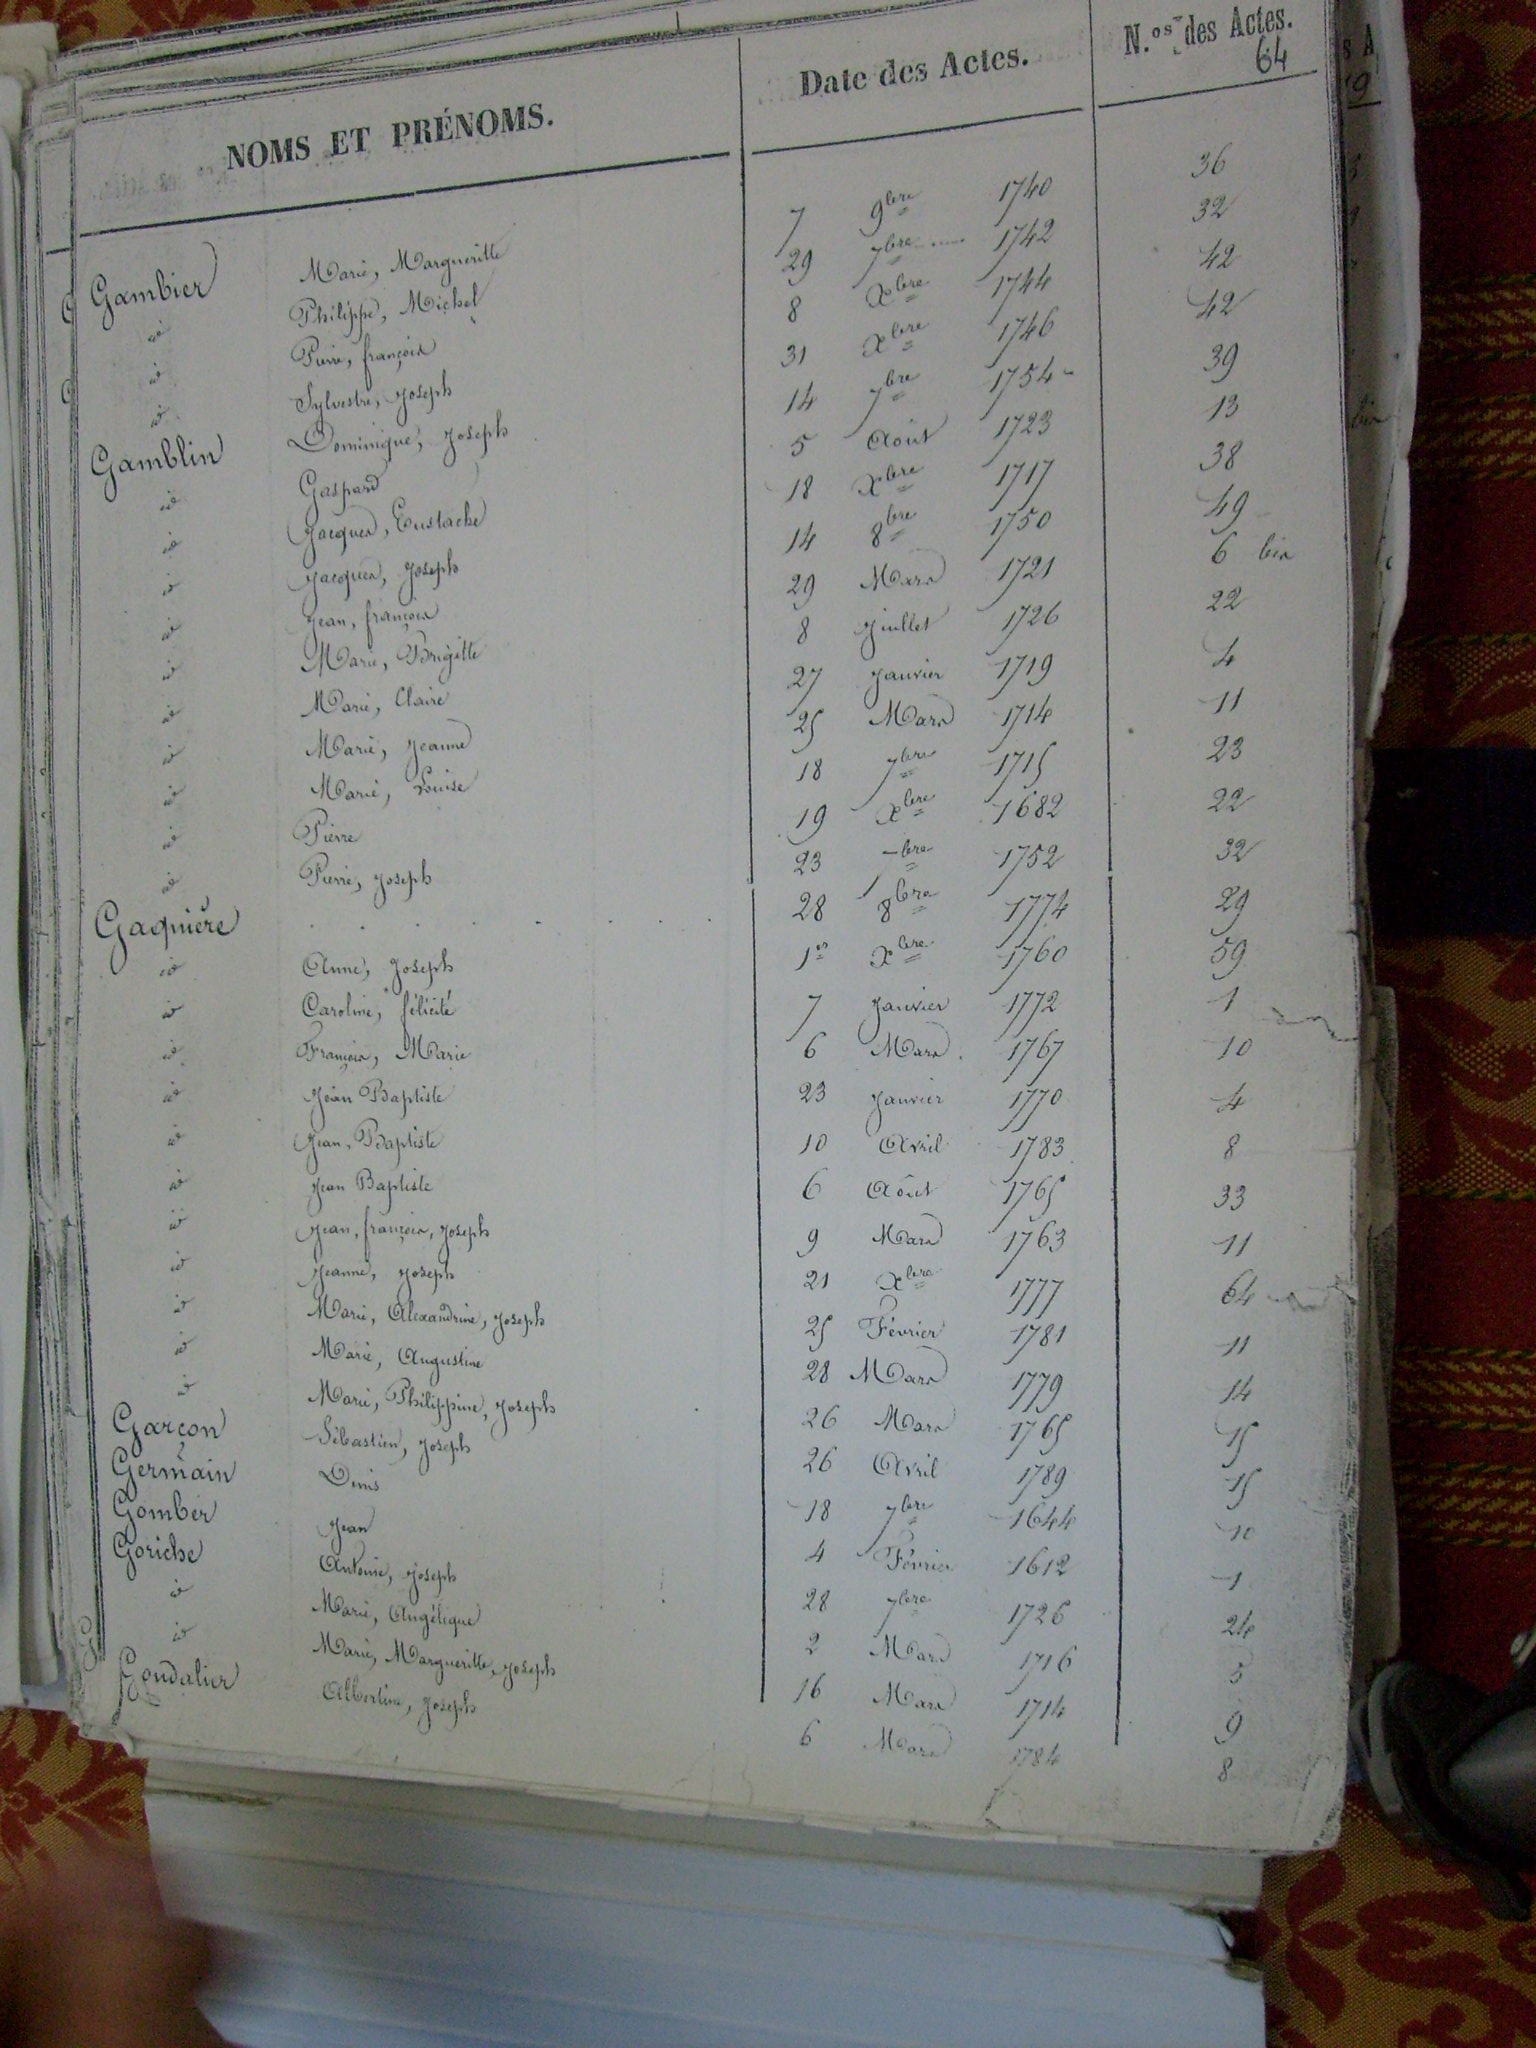 NOMS ET PRÉNOMS. Date des Actes. N.os des Actes.
64
Gambier Marie, Margueritte 7 9bre 1740 36
id Philippe, Michel 29 7bre 1742 32
id Pierre, françois 8 Xbre 1744 42
id Sylvestre, Joseph 31 Xbre 1746 42
Gamblin Dominique, Joseph 14 7bre 1754 39
id Gaspard 5 Août 1723 13
id Jacques, Eustache 18 Xbre 1717 38
id Jacques, Joseph 14 8bre 1750 49
id Jean, françois 29 Mars 1721 6 bis
id Marie, Brigitte 8 Juillet 1726 22
id Marie, Claire 27 Janvier 1719 4
id Marie, Jeanne 25 Mars 1714 11
id Marie, Louise 18 7bre 1715 23
id Pierre 19 Xbre 1682 22
id Pierre, Joseph 23 7bre 1752 32
Gaquière . . . . . 28 8bre 1774 29
id Anne, Joseph 1er Xbre 1760 59
id Caroline, félicité 7 Janvier 1772 1
id François, Marie 6 Mars 1767 10
id Jean Baptiste 23 Janvier 1770 4
id Jean, Baptiste 10 Avril 1783 8
id Jean Baptiste 6 Août 1765 33
id Jean, françois, Joseph 9 Mars 1763 11
id Jeanne, Joseph 21 Xbre 1777 64
id Marie, Alexandrine, Joseph 25 Février 1781 11
id Marie, Augustine 28 Mars 1779 14
id Marie, Philippine, Joseph 26 Mars 1765 15
Garçon Sébastien, Joseph 26 Avril 1789 15
Germain Denis 18 7bre 1644 10
Gomber Jean 4 Février 1612 1
Goriche Antoine, Joseph 28 7bre 1726 24
id Marie, Angélique 2 Mars 1716 5
id Marie, Margueritte, Joseph 16 Mars 1714 9
Gondalier Albertine, Joseph 6 Mars 1784 8